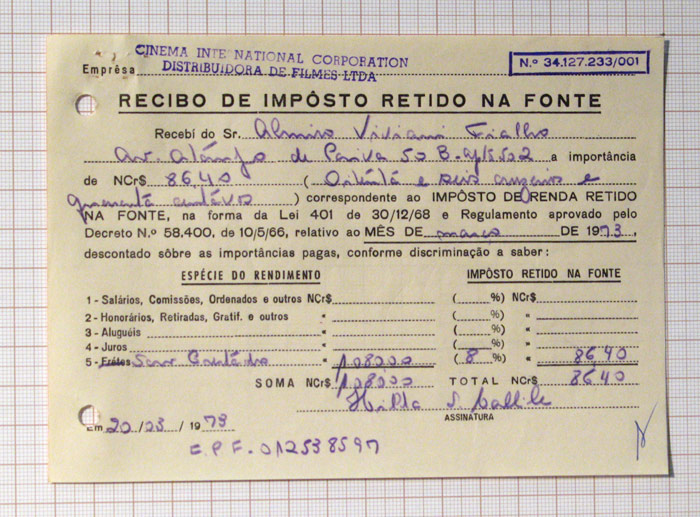 CINEMA INTE NATIONAL CORPORATION
Emprêsa DISTRIBUIDORA DE FILMES LTDA
N.º 34.127.233/001
RECIBO DE IMPÔSTO RETIDO NA FONTE
Recebí do Sr. Almiro Viviani Fialho
Av. de Paiva 50 B. a importância
de NCr$ 86,40 ( Oitenta e seis cruzeiros e
quarenta centavos ) correspondente ao IMPÔSTO DE RENDA RETIDO
NA FONTE, na forma da Lei 401 de 30/12/68 e Regulamento aprovado pelo
Decreto N.º 58.400, de 10/5/66, relativo ao MÊS DE março DE 1973,
descontado sôbre as importâncias pagas, conforme discriminação a saber:
ESPÉCIE DO RENDIMENTO IMPÔSTO RETIDO NA FONTE
1 - Salários, Comissões, Ordenados e outros NCr$ ( %) NCr$
2 - Honorários, Retiradas, Gratif. e outros " ( %) "
3 - Aluguéis " ( %) "
4 - Juros " ( %) "
5 - Frétes Serv Contádo " 1.080,00 ( 8 %) " 86,40
SOMA NCr$ 1.080,00 TOTAL NCr$ 86,40
Hilda S.
ASSINATURA
Em 20/03/1973
C.P.F. 012538597